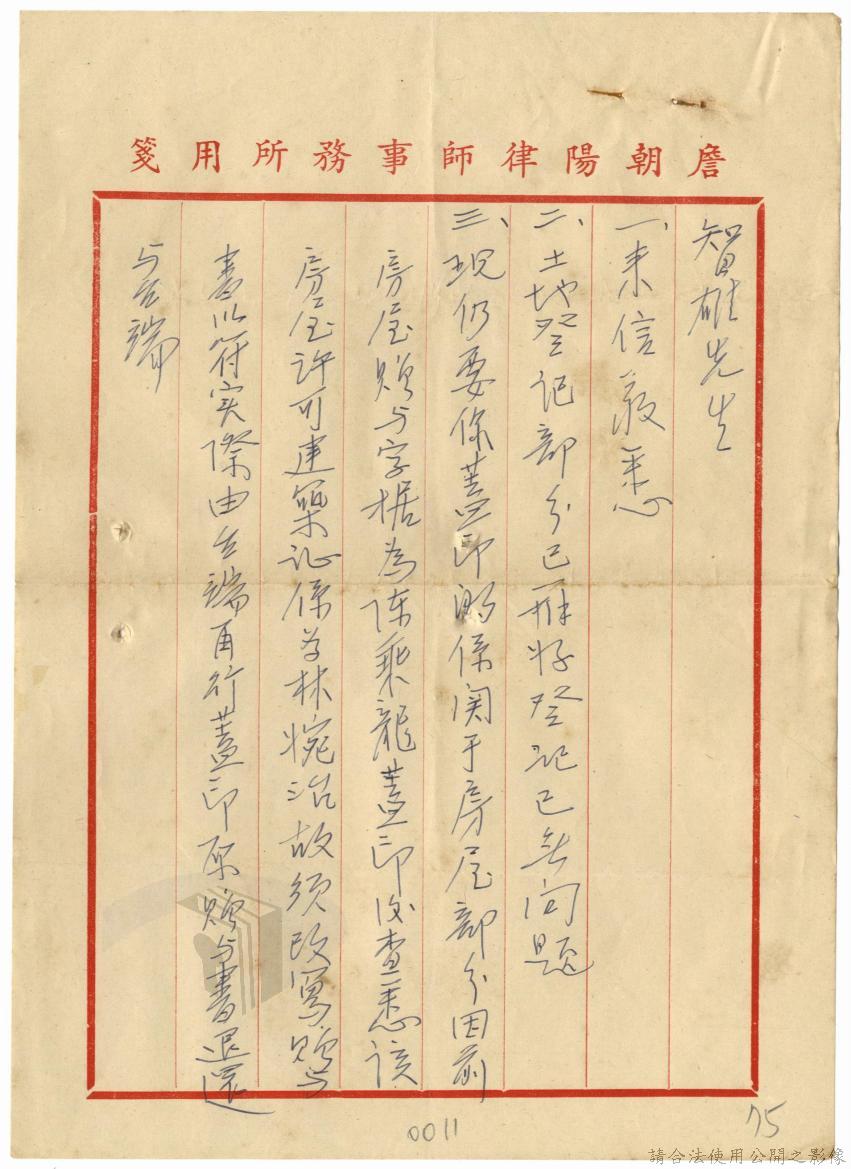 詹朝陽律師事務所用箋
智雄先生
一、来信敬悉
二、土地登记部分已辦好登记已無问题
三、現仍要你蓋印的係関于房屋部分因前
房屋贈与字据為陈乘龍蓋印後查悉該
房屋許可建築证係为林婉治故須改寫贈与
書以符实際由台端再行蓋印原贈与書退還
与台端
0011
75
請合法使用公開之影像